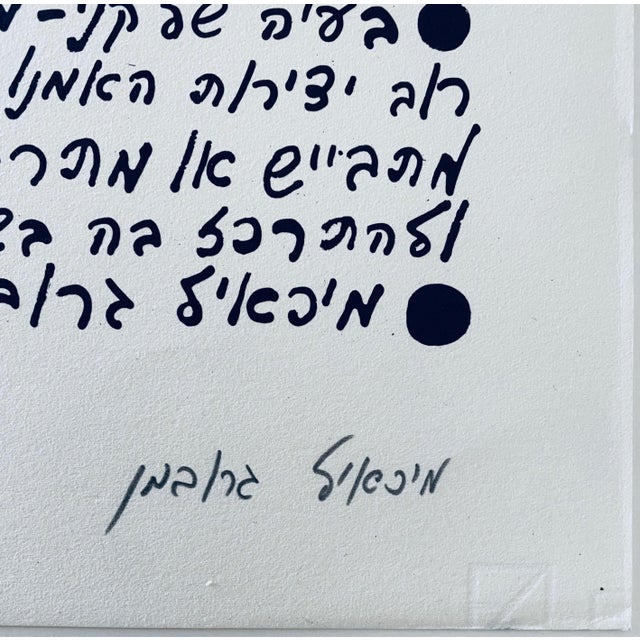 ● בעיה של קני-
רוב יצירות האמנו
מתבייש או מתר
ולהתרכז בה
● מיכאיל גרוב
מיכאיל גרובמן